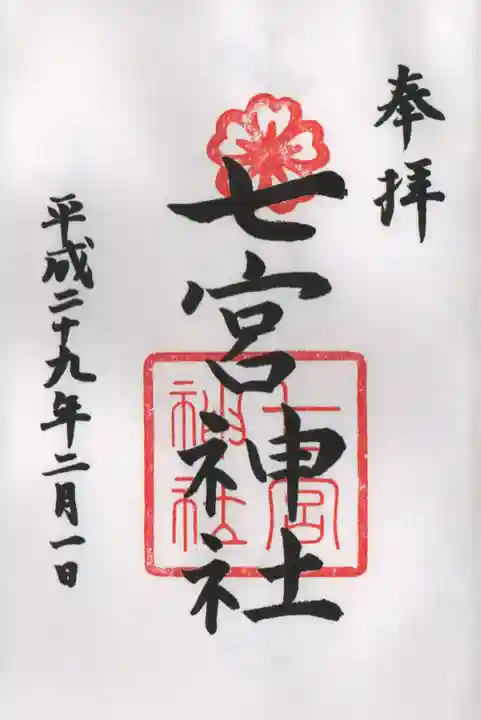 奉拝
七宮神社
七宮
神社
平成二十九年二月一日